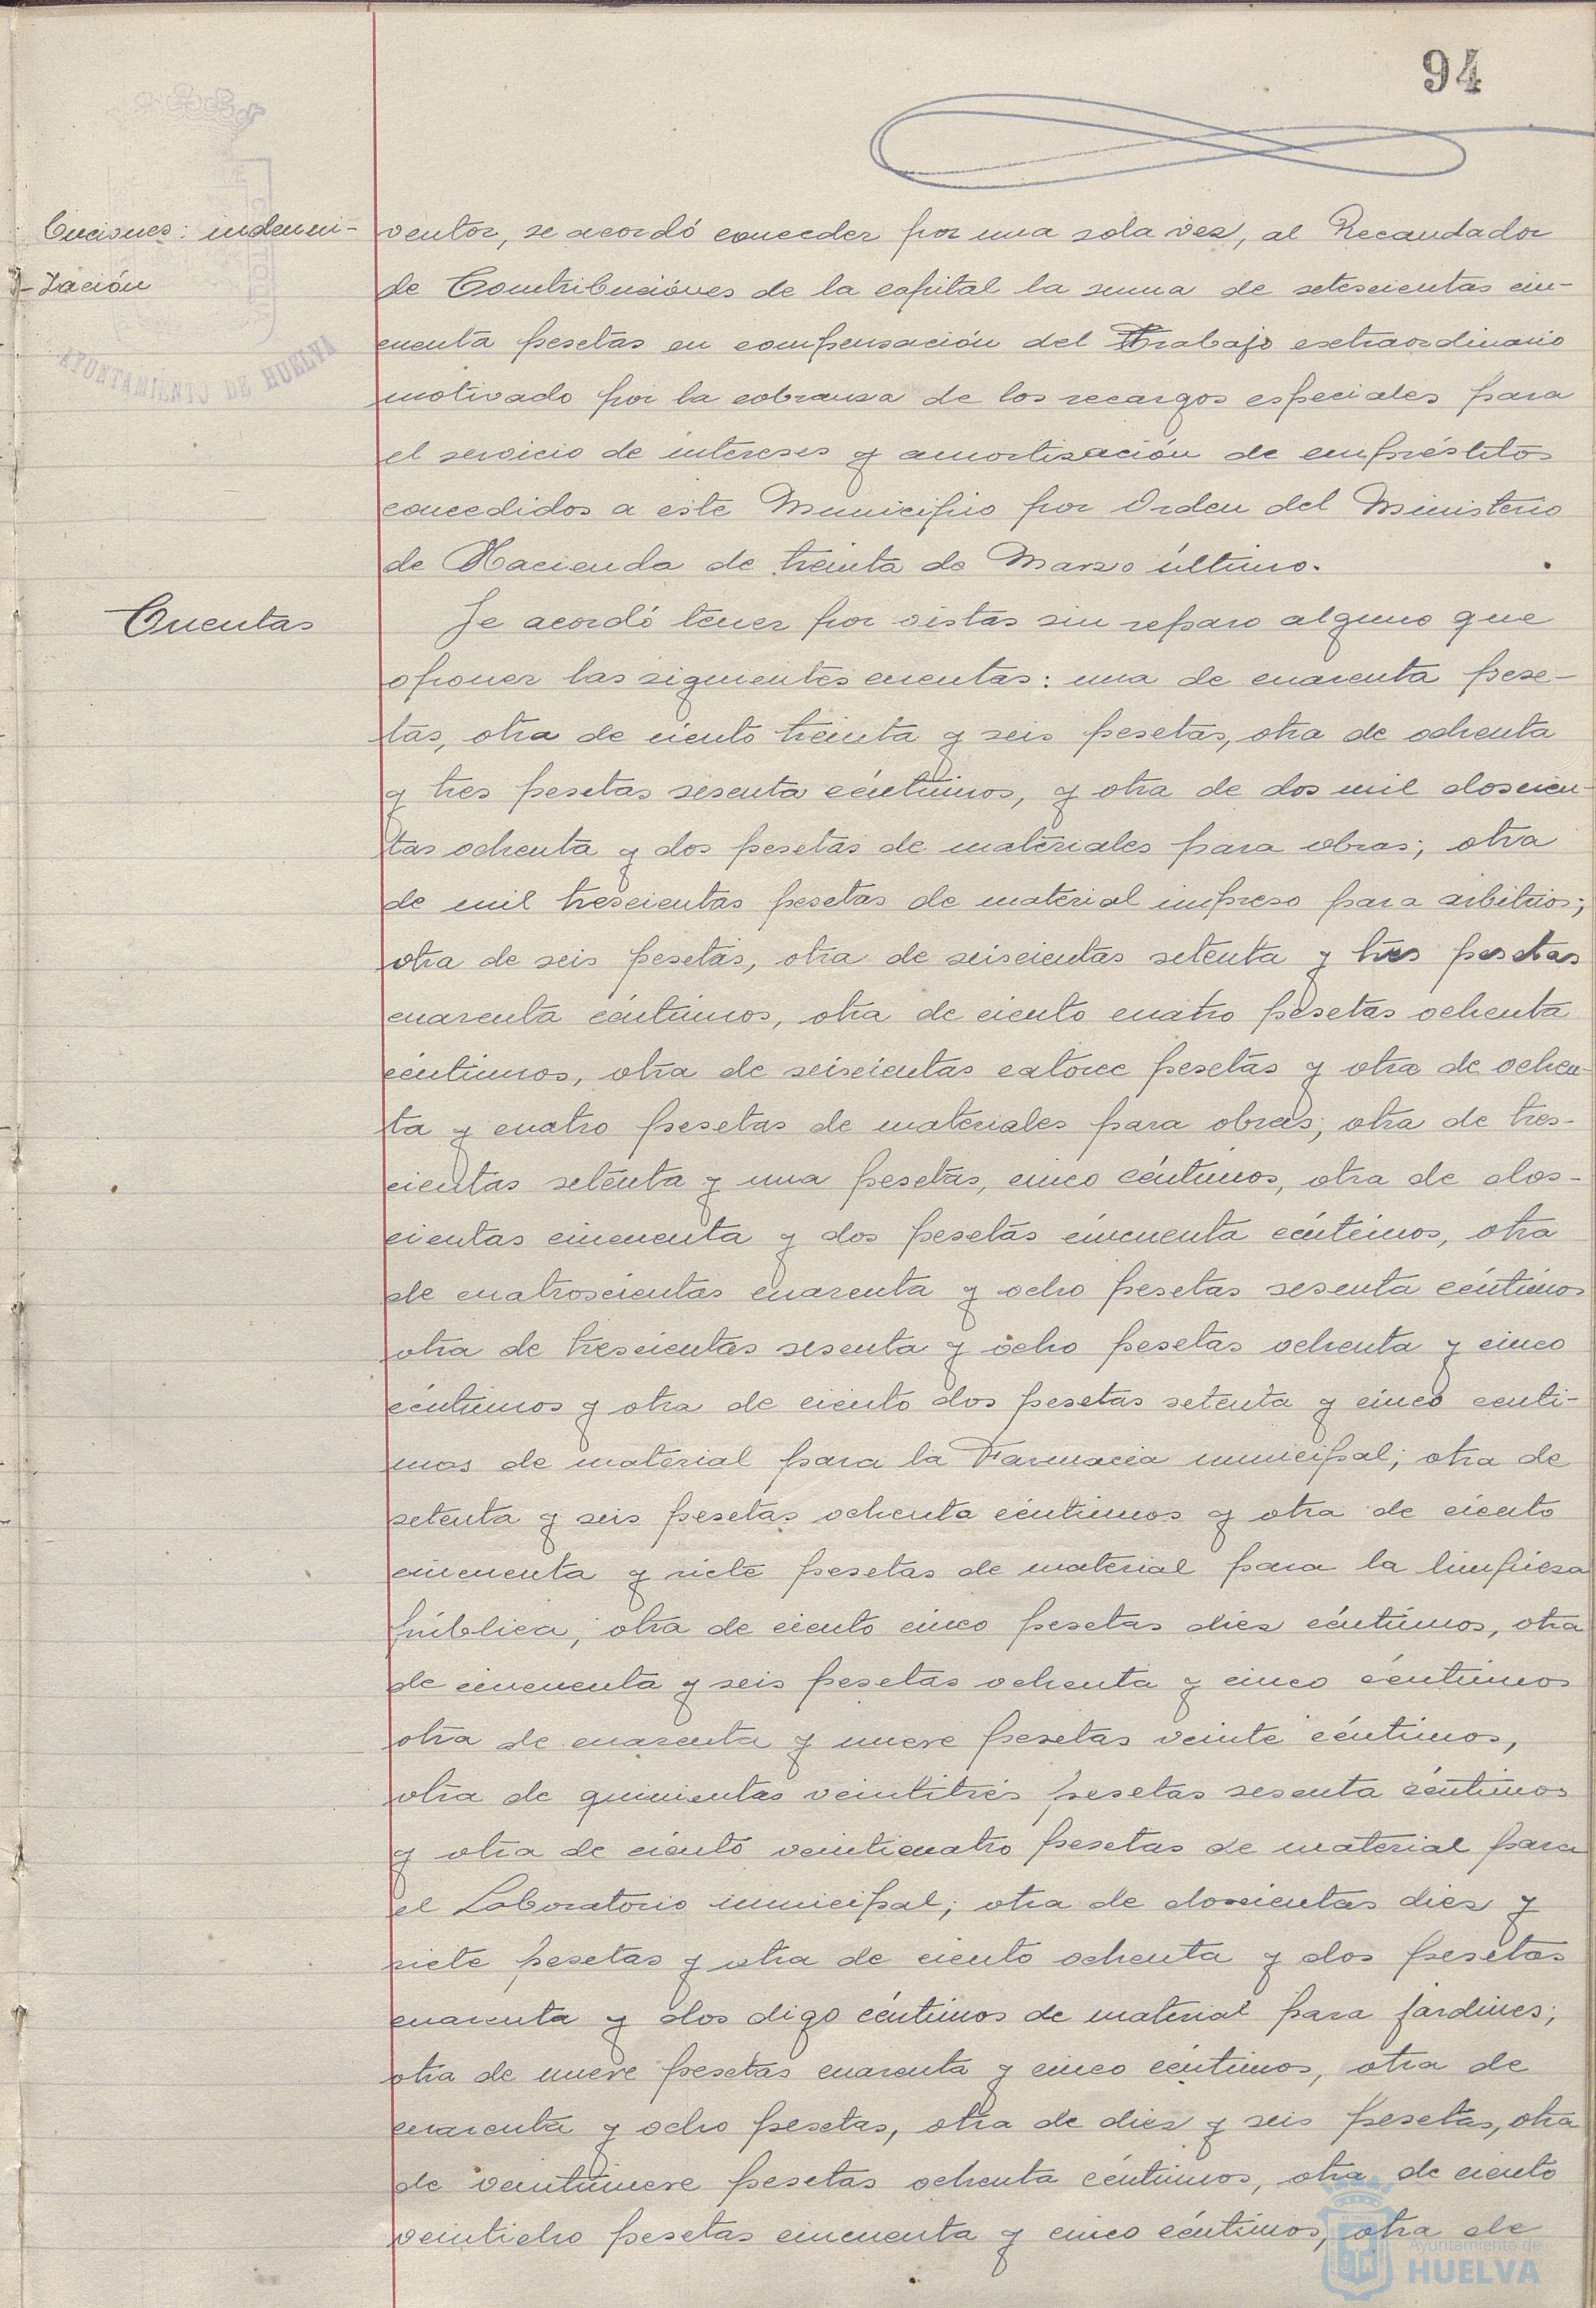 94
buciones: indemni-
zación
ventor, se acordó conceder por una sola vez, al Recaudador
de Contribuciónes de la capital la suma de setescientas cin-
cuenta pesetas en compensación del Trabajo extraordinario
motivado por la cobranza de los recargos especiales para
el servicio de intereses y amortización de empréstitos
concedidos a este Municipio por Orden del Ministerio
de Hacienda de treinta de Marzo último.
Cuentas
Se acordó tener por vistas sin reparo alguno que
oponer las siguientes cuentas: una de cuarenta pese-
tas, otra de ciento treinta y seis pesetas, otra de ochenta
y tres pesetas sesenta céntimos, y otra de dos mil doscien-
tas ochenta y dos pesetas de materiales para obras; otra
de mil trescientas pesetas de material impreso para arbitrios;
otra de seis pesetas, otra de seiscientas setenta y tres pesetas
cuarenta céntimos, otra de ciento cuatro pesetas ochenta
céntimos, otra de seiscientas catorce pesetas y otra de ochen-
ta y cuatro pesetas de materiales para obras; otra de tres-
cientas setenta y una pesetas, cinco céntimos, otra de dos-
cientas cincuenta y dos pesetas cincuenta céntimos, otra
de cuatroscientas cuarenta y ocho pesetas sesenta céntimos
otra de trescientas sesenta y ocho pesetas ochenta y cinco
céntimos y otra de ciento dos pesetas setenta y cinco centi-
mos de material para la Farmacia municipal; otra de
setenta y seis pesetas ochenta céntimos y otra de ciento
cincuenta y siete pesetas de material para la limpieza
pública; otra de ciento cinco pesetas diez céntimos, otra
de cincuenta y seis pesetas ochenta y cinco centimos
otra de cuarenta y nueve pesetas veinte céntimos,
otra de quinientas veintitrés pesetas sesenta céntimos
y otra de ciento veinticuatro pesetas de material para
el Laboratorio municipal; otra de doscientas diez y
siete pesetas y otra de ciento ochenta y dos pesetas
cuarenta y dos digo céntimos de material para jardines;
otra de nueve pesetas cuarenta y cinco céntimos, otra de
cuarenta y ocho pesetas, otra de diez y seis pesetas, otra
de veintinueve pesetas ochenta céntimos, otra de ciento
veintiocho pesetas cincuenta y cinco céntimos, otra de
AYUNTAMIENTO DE HUELVA
Ayuntamiento de
HUELVA